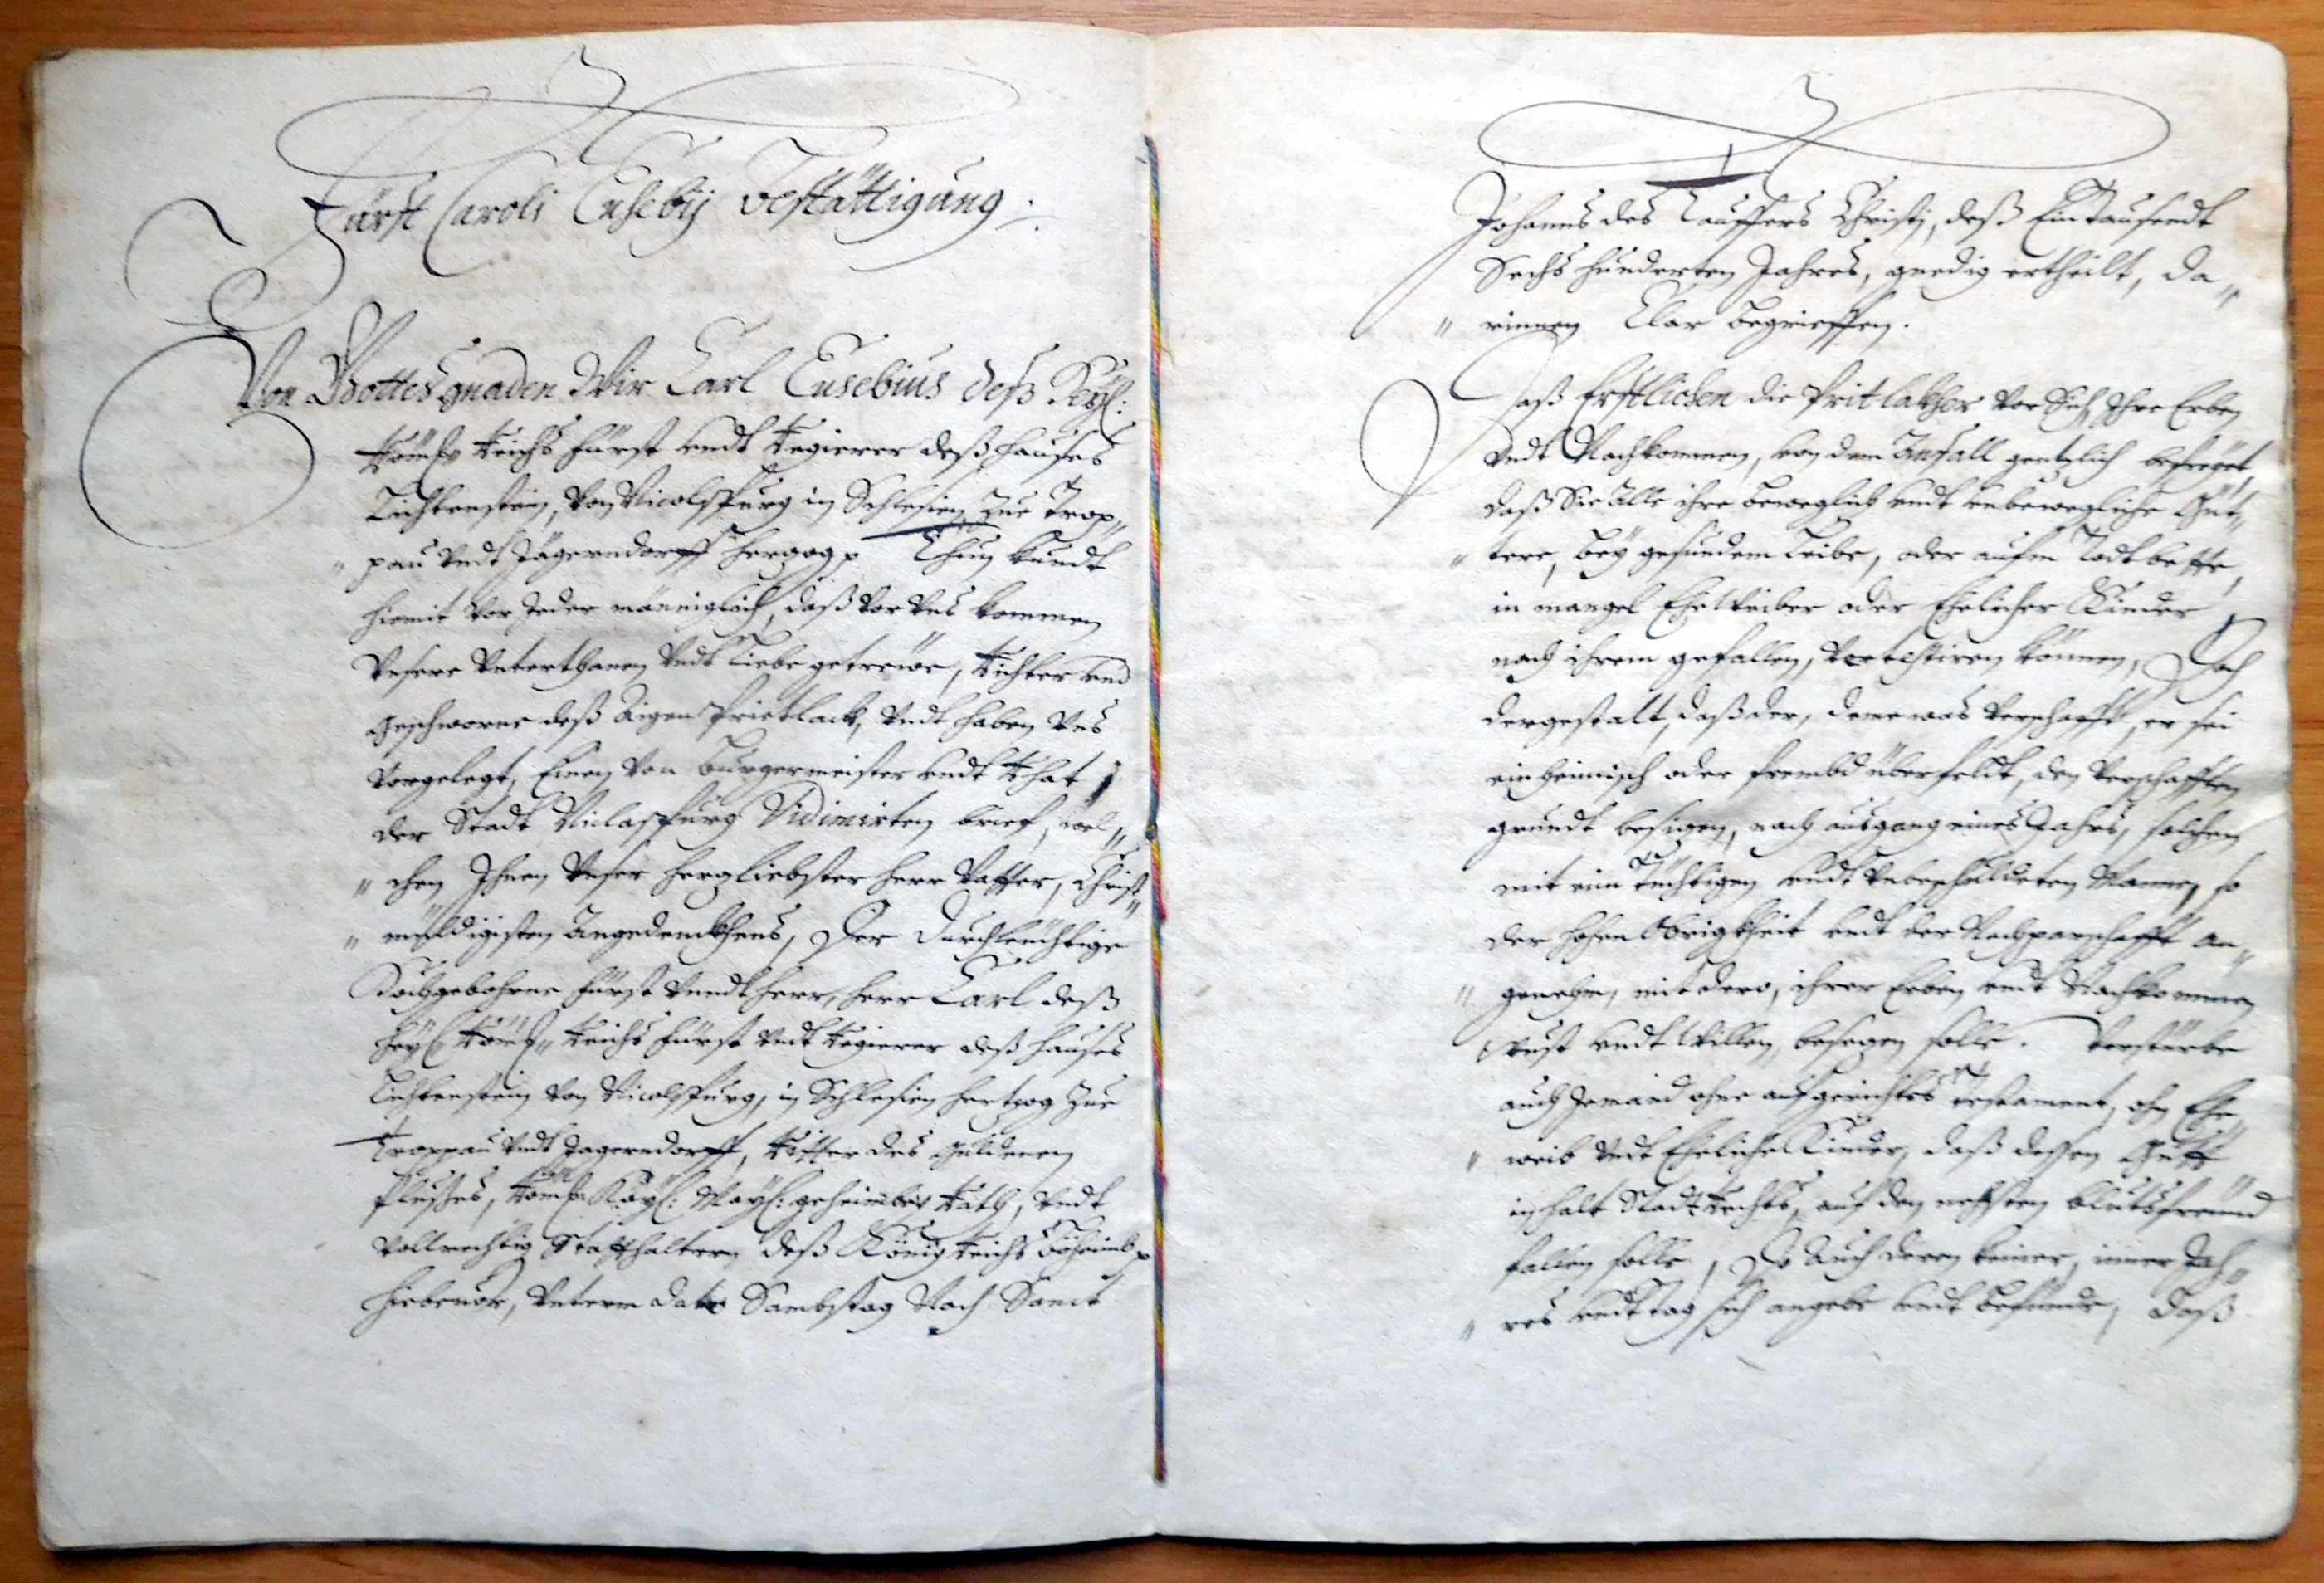 Fürst Caroli Eusebÿ Bestättigung.
Von Gottes gnaden Wir Carl Eusebius deß Heÿl:
Römb: Reichs Fürst undt Regierer deß Hauses
Liechtenstein, Von Nicolspurg in Schlesien, Zue Trop„
„pau Undt Jägerndorff Herzog p Thun kundt
hiemit Vor Jeder männiglich, daß Vor Uns kommen
Unsere Unterthanen Undt Liebe getrewe, Richter und
Geschworne deß Aigen Prietlack, Undt haben Uns
Vorgelegt, Einen Von Burgermeister undt Rhat
der Stadt Niclaspurg Vidimirten brief, wel„
„chen Ihnen Unser herzliebster Herr Vatter, Christ„
„müldigisten Angedenckhens, Der Durchleüchtige
Hochgebohrne Fürst Unndt Herr, Herr Carl deß
Heÿl: Römb: Reichs Fürst Undt Regierer deß Hauses
Liechtenstein Von Nicolspurg, in Schlesien Hertzog Zue
Troppau Undt Jagerndorff, Ritter des Guldenen
Flußes, Römb: Kaÿ: Maÿ: geheimber Rath, Undt
Vollmechtig Statthaltern deß König Reichs Böheimb p
hiebeuor, Unterm dato Sambstag Nach Sanct
Johannes des Tauffers Christi, deß Ein Tausendt
Sechs hunderten Jahres, gnedig ertheilt, da„
„rinnen Clar begrieffen.
Daß Erstlichen die Pritlakher Vor Sich, Ihre Erben
Undt Nachkommen, von dem Anfall gentzlich befreÿet,
daß Sie Alle ihre bewegliche undt unbewegliche Güt„
„tere, Beÿ gesundem Leibe, oder aufm Todtbette,
in mangel Eheweiber oder Ehelicher Kinder
nach ihrem gefallen, Vertestiren können, Doch
dergestalt, daß der, deme was Verschafft, er sei
einheimisch oder frembd überfeldt, den Verschafften
grundt besizen, nach ausgang eines Jahrs, solchen
mit ein Tüchtigen undt Unbeschuldeten Mannen, so
der hohen Obrigkheit undt der Nachparschafft an„
„genehm, mit dero, ihrer Erben undt Nachkommen
Gust undt Willen, besezen solle. Versturbe
auch Jemand ohne aufgerichtes Testament, ohn Ehe„
„weib Undt Eheliche Kinder, daß dessen Guett
inhalt Stadt Rechts, auf den nechsten blutsfreund
fallen solle, Do Auch deren keiner, inner Jah„
„res undt tag sich angebe undt befünde, daß